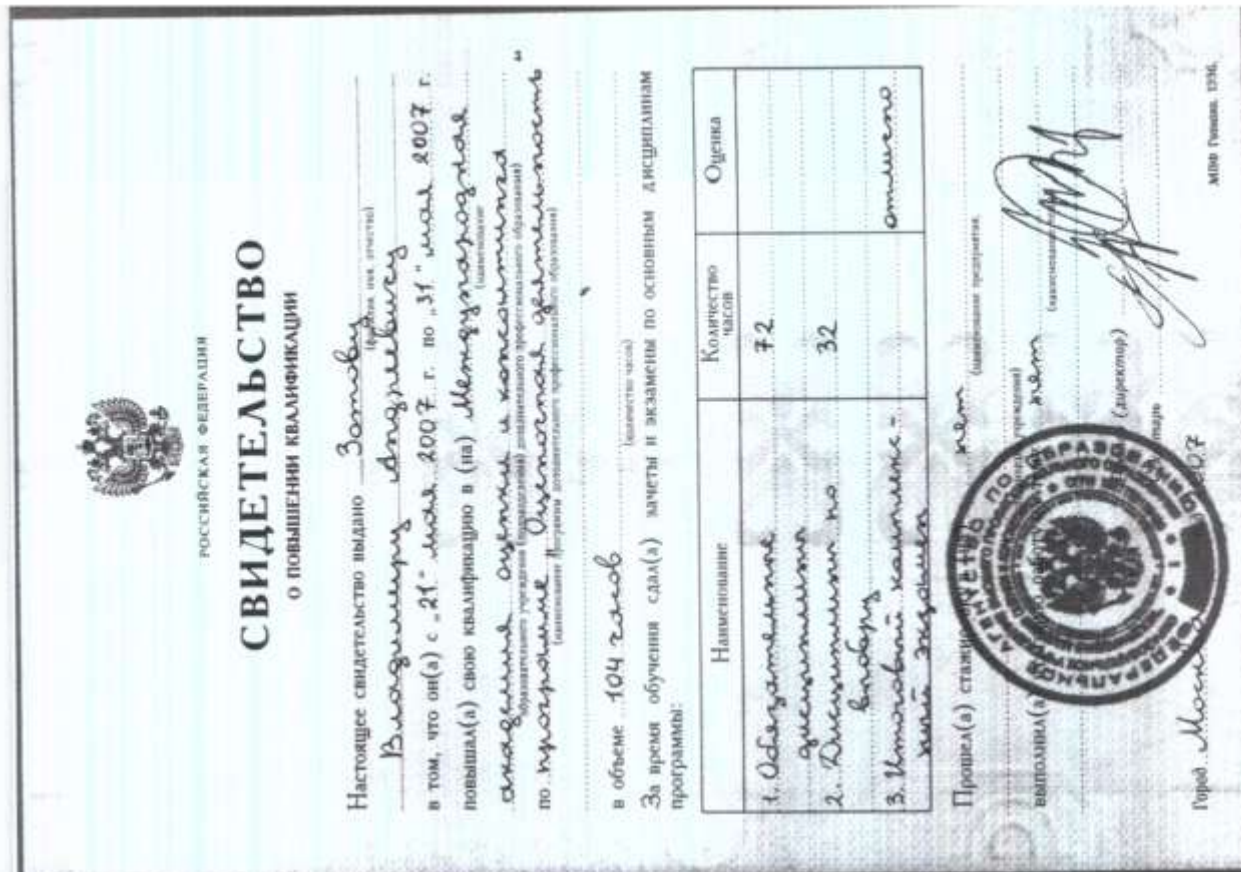 РОССИЙСКАЯ ФЕДЕРАЦИЯ
СВИДЕТЕЛЬСТВО
О ПОВЫШЕНИИ КВАЛИФИКАЦИИ
Настоящее свидетельство выдано Зотову
(фамилия, имя, отчество)
Владимиру Андреевичу
в том, что он(а) с „21" мая 2007 г. по „31" мая 2007 г.
повышал(а) свою квалификацию в (на) Международная
(наименование
академия оценки и консалтинга
образовательного учреждения (подразделения) дополнительного профессионального образования)
по программе „Оценочная деятельность"
(наименование программы дополнительного профессионального образования)
в объеме 104 часов
(количество часов)
За время обучения сдал(а) зачеты и экзамены по основным дисциплинам
программы:
Наименование Количество часов Оценка
1. Обязательные
дисциплины 72
2. Дисциплины по 32
выбору
3. Итоговый комплекс-
ный экзамен отлично
Прошел(а) стажи нет
(наименование предприятия,
учреждения)
выполнил(а) нет
(наименование
(директор)
Город Москва 2007
МПФ Гознака. 1996.
ФЕДЕРАЛЬНОЕ АГЕНТСТВО ПО ОБРАЗОВАНИЮ